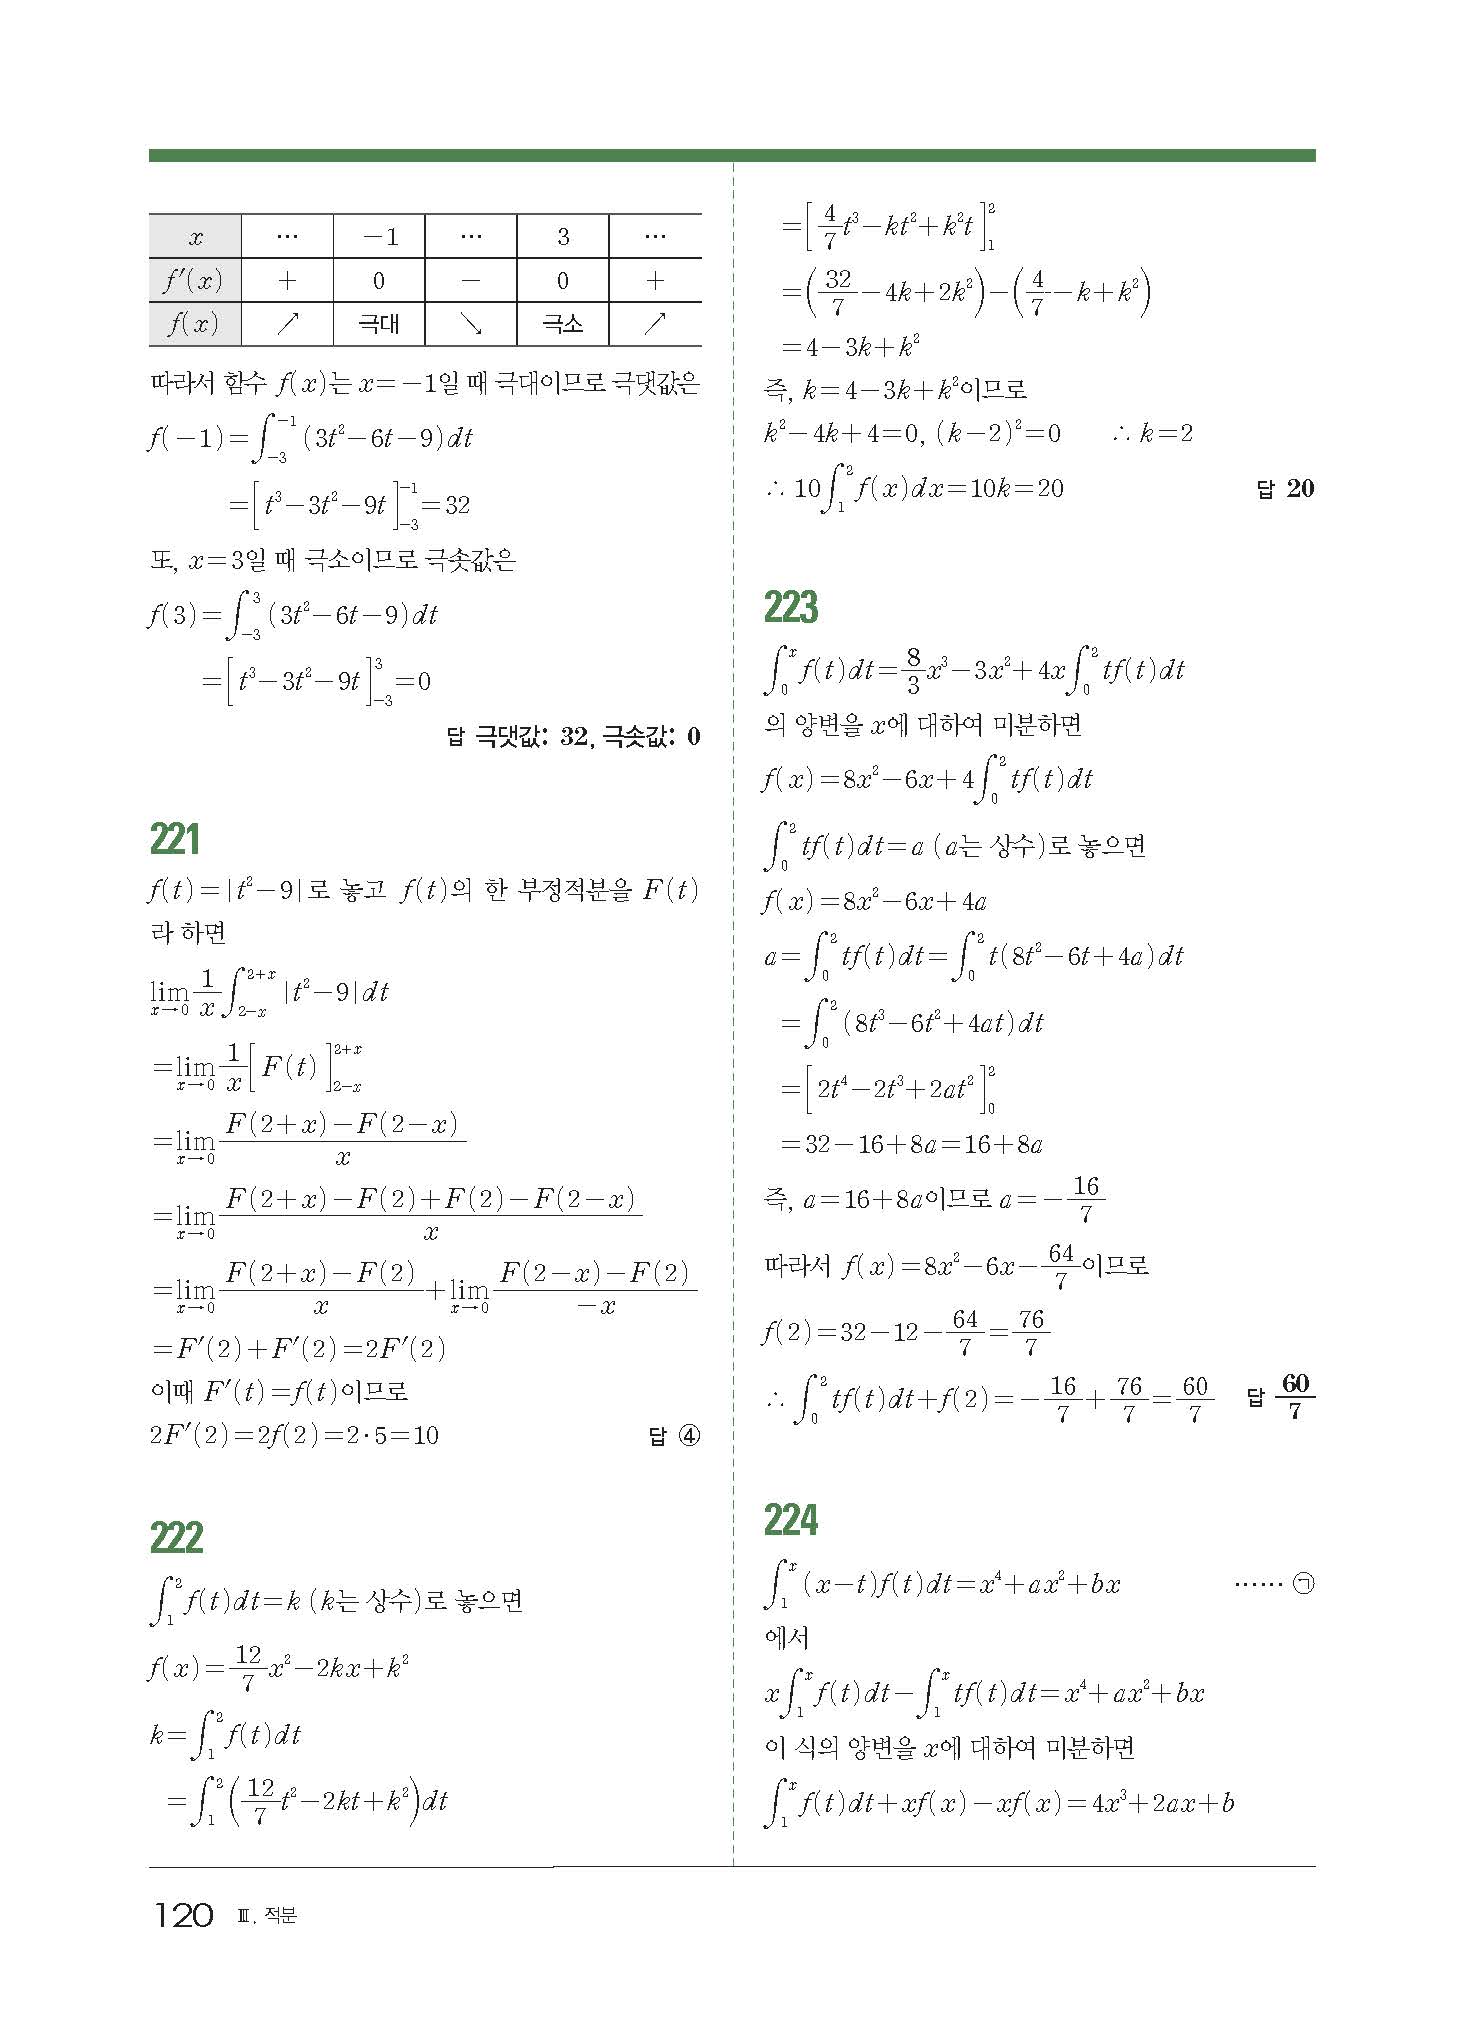 x ⋯ -1 ⋯ 3 ⋯
f′(x) + 0 - 0 +
f(x) ↗ 극대 ↘ 극소 ↗
따라서 함수 f(x)는 x=-1일 때 극대이므로 극댓값은
f(-1)=∫_{-3}^{-1}(3t²-6t-9)dt
=[t³-3t²-9t]_{-3}^{-1}=32
또, x=3일 때 극소이므로 극솟값은
f(3)=∫_{-3}^{3}(3t²-6t-9)dt
=[t³-3t²-9t]_{-3}^{3}=0
답 극댓값: 32, 극솟값: 0
221
f(t)=|t²-9|로 놓고 f(t)의 한 부정적분을 F(t)
라 하면
lim_{x→0} 1/x ∫_{2-x}^{2+x}|t²-9|dt
=lim_{x→0} 1/x [F(t)]_{2-x}^{2+x}
=lim_{x→0} {F(2+x)-F(2-x)}/x
=lim_{x→0} {F(2+x)-F(2)+F(2)-F(2-x)}/x
=lim_{x→0} {F(2+x)-F(2)}/x + lim_{x→0} {F(2-x)-F(2)}/-x
=F′(2)+F′(2)=2F′(2)
이때 F′(t)=f(t)이므로
2F′(2)=2f(2)=2·5=10 답 ④
222
∫_{1}^{2}f(t)dt=k (k는 상수)로 놓으면
f(x)=12/7 x²-2kx+k²
k=∫_{1}^{2}f(t)dt
=∫_{1}^{2}(12/7 t²-2kt+k²)dt
=[4/7 t³-kt²+k²t]_{1}^{2}
=(32/7-4k+2k²)-(4/7-k+k²)
=4-3k+k²
즉, k=4-3k+k²이므로
k²-4k+4=0, (k-2)²=0 ∴ k=2
∴ 10∫_{1}^{2}f(x)dx=10k=20 답 20
223
∫_{0}^{x}f(t)dt=8/3 x³-3x²+4x∫_{0}^{2}tf(t)dt
의 양변을 x에 대하여 미분하면
f(x)=8x²-6x+4∫_{0}^{2}tf(t)dt
∫_{0}^{2}tf(t)dt=a (a는 상수)로 놓으면
f(x)=8x²-6x+4a
a=∫_{0}^{2}tf(t)dt=∫_{0}^{2}t(8t²-6t+4a)dt
=∫_{0}^{2}(8t³-6t²+4at)dt
=[2t⁴-2t³+2at²]_{0}^{2}
=32-16+8a=16+8a
즉, a=16+8a이므로 a=-16/7
따라서 f(x)=8x²-6x-64/7이므로
f(2)=32-12-64/7=76/7
∴ ∫_{0}^{2}tf(t)dt+f(2)=-16/7+76/7=60/7 답 60/7
224
∫_{1}^{x}(x-t)f(t)dt=x⁴+ax²+bx ⋯⋯ ㉠
에서
x∫_{1}^{x}f(t)dt-∫_{1}^{x}tf(t)dt=x⁴+ax²+bx
이 식의 양변을 x에 대하여 미분하면
∫_{1}^{x}f(t)dt+xf(x)-xf(x)=4x³+2ax+b
120 Ⅲ. 적분